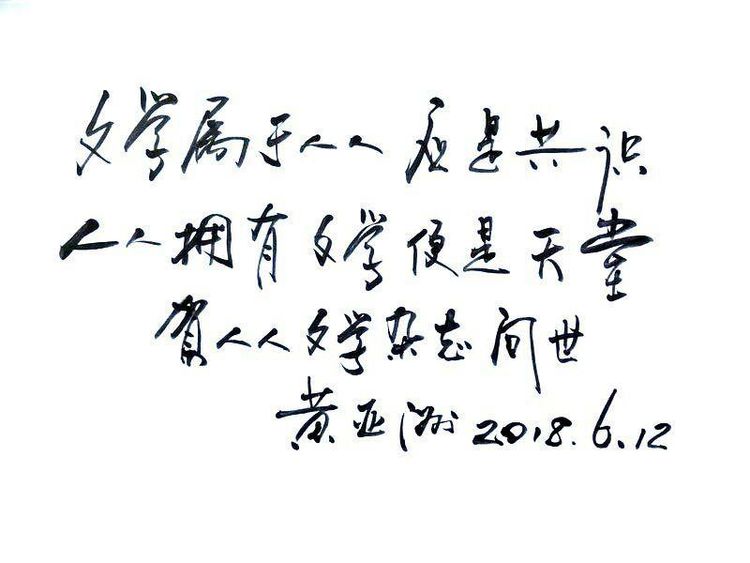 文学属于人人 应是共识
人人拥有文学便是天堂
贺人人文学杂志问世
黄亚洲 2018.6.12